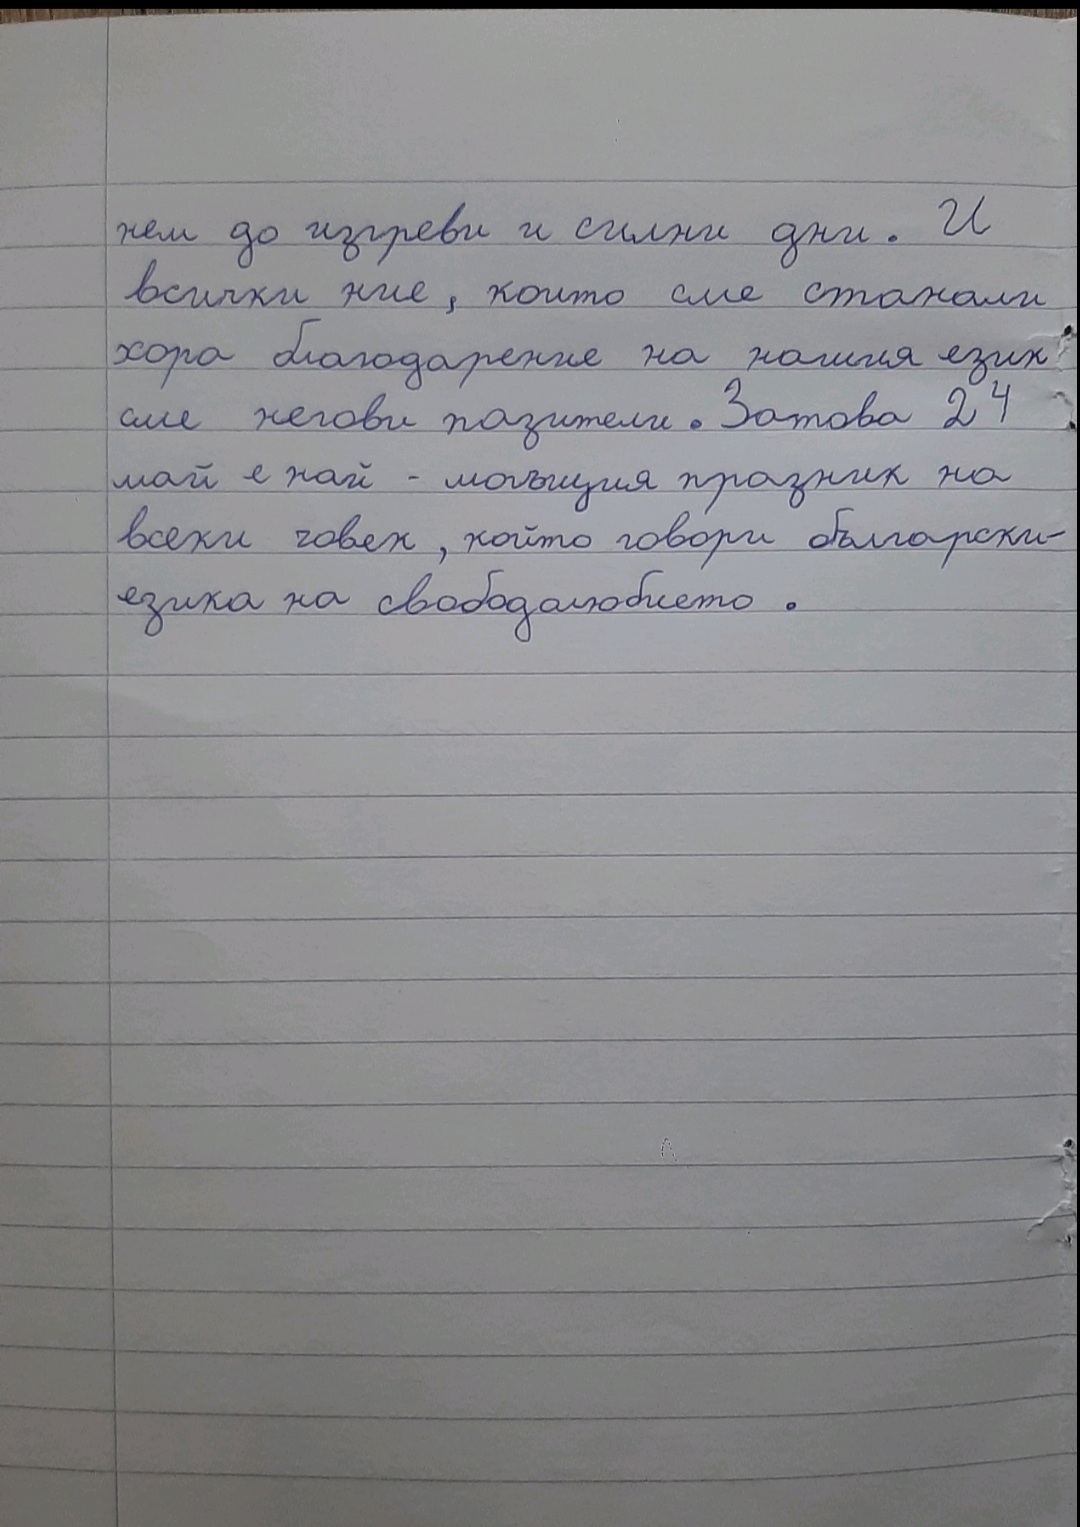 нем до изгреви и силни дни. И
всички ние, които сме станали
хора благодарение на нашия език
сме негови пазители. Затова 24
май е най - могъщия празник на
всеки човек, който говори български-
езика на свободолюбието.